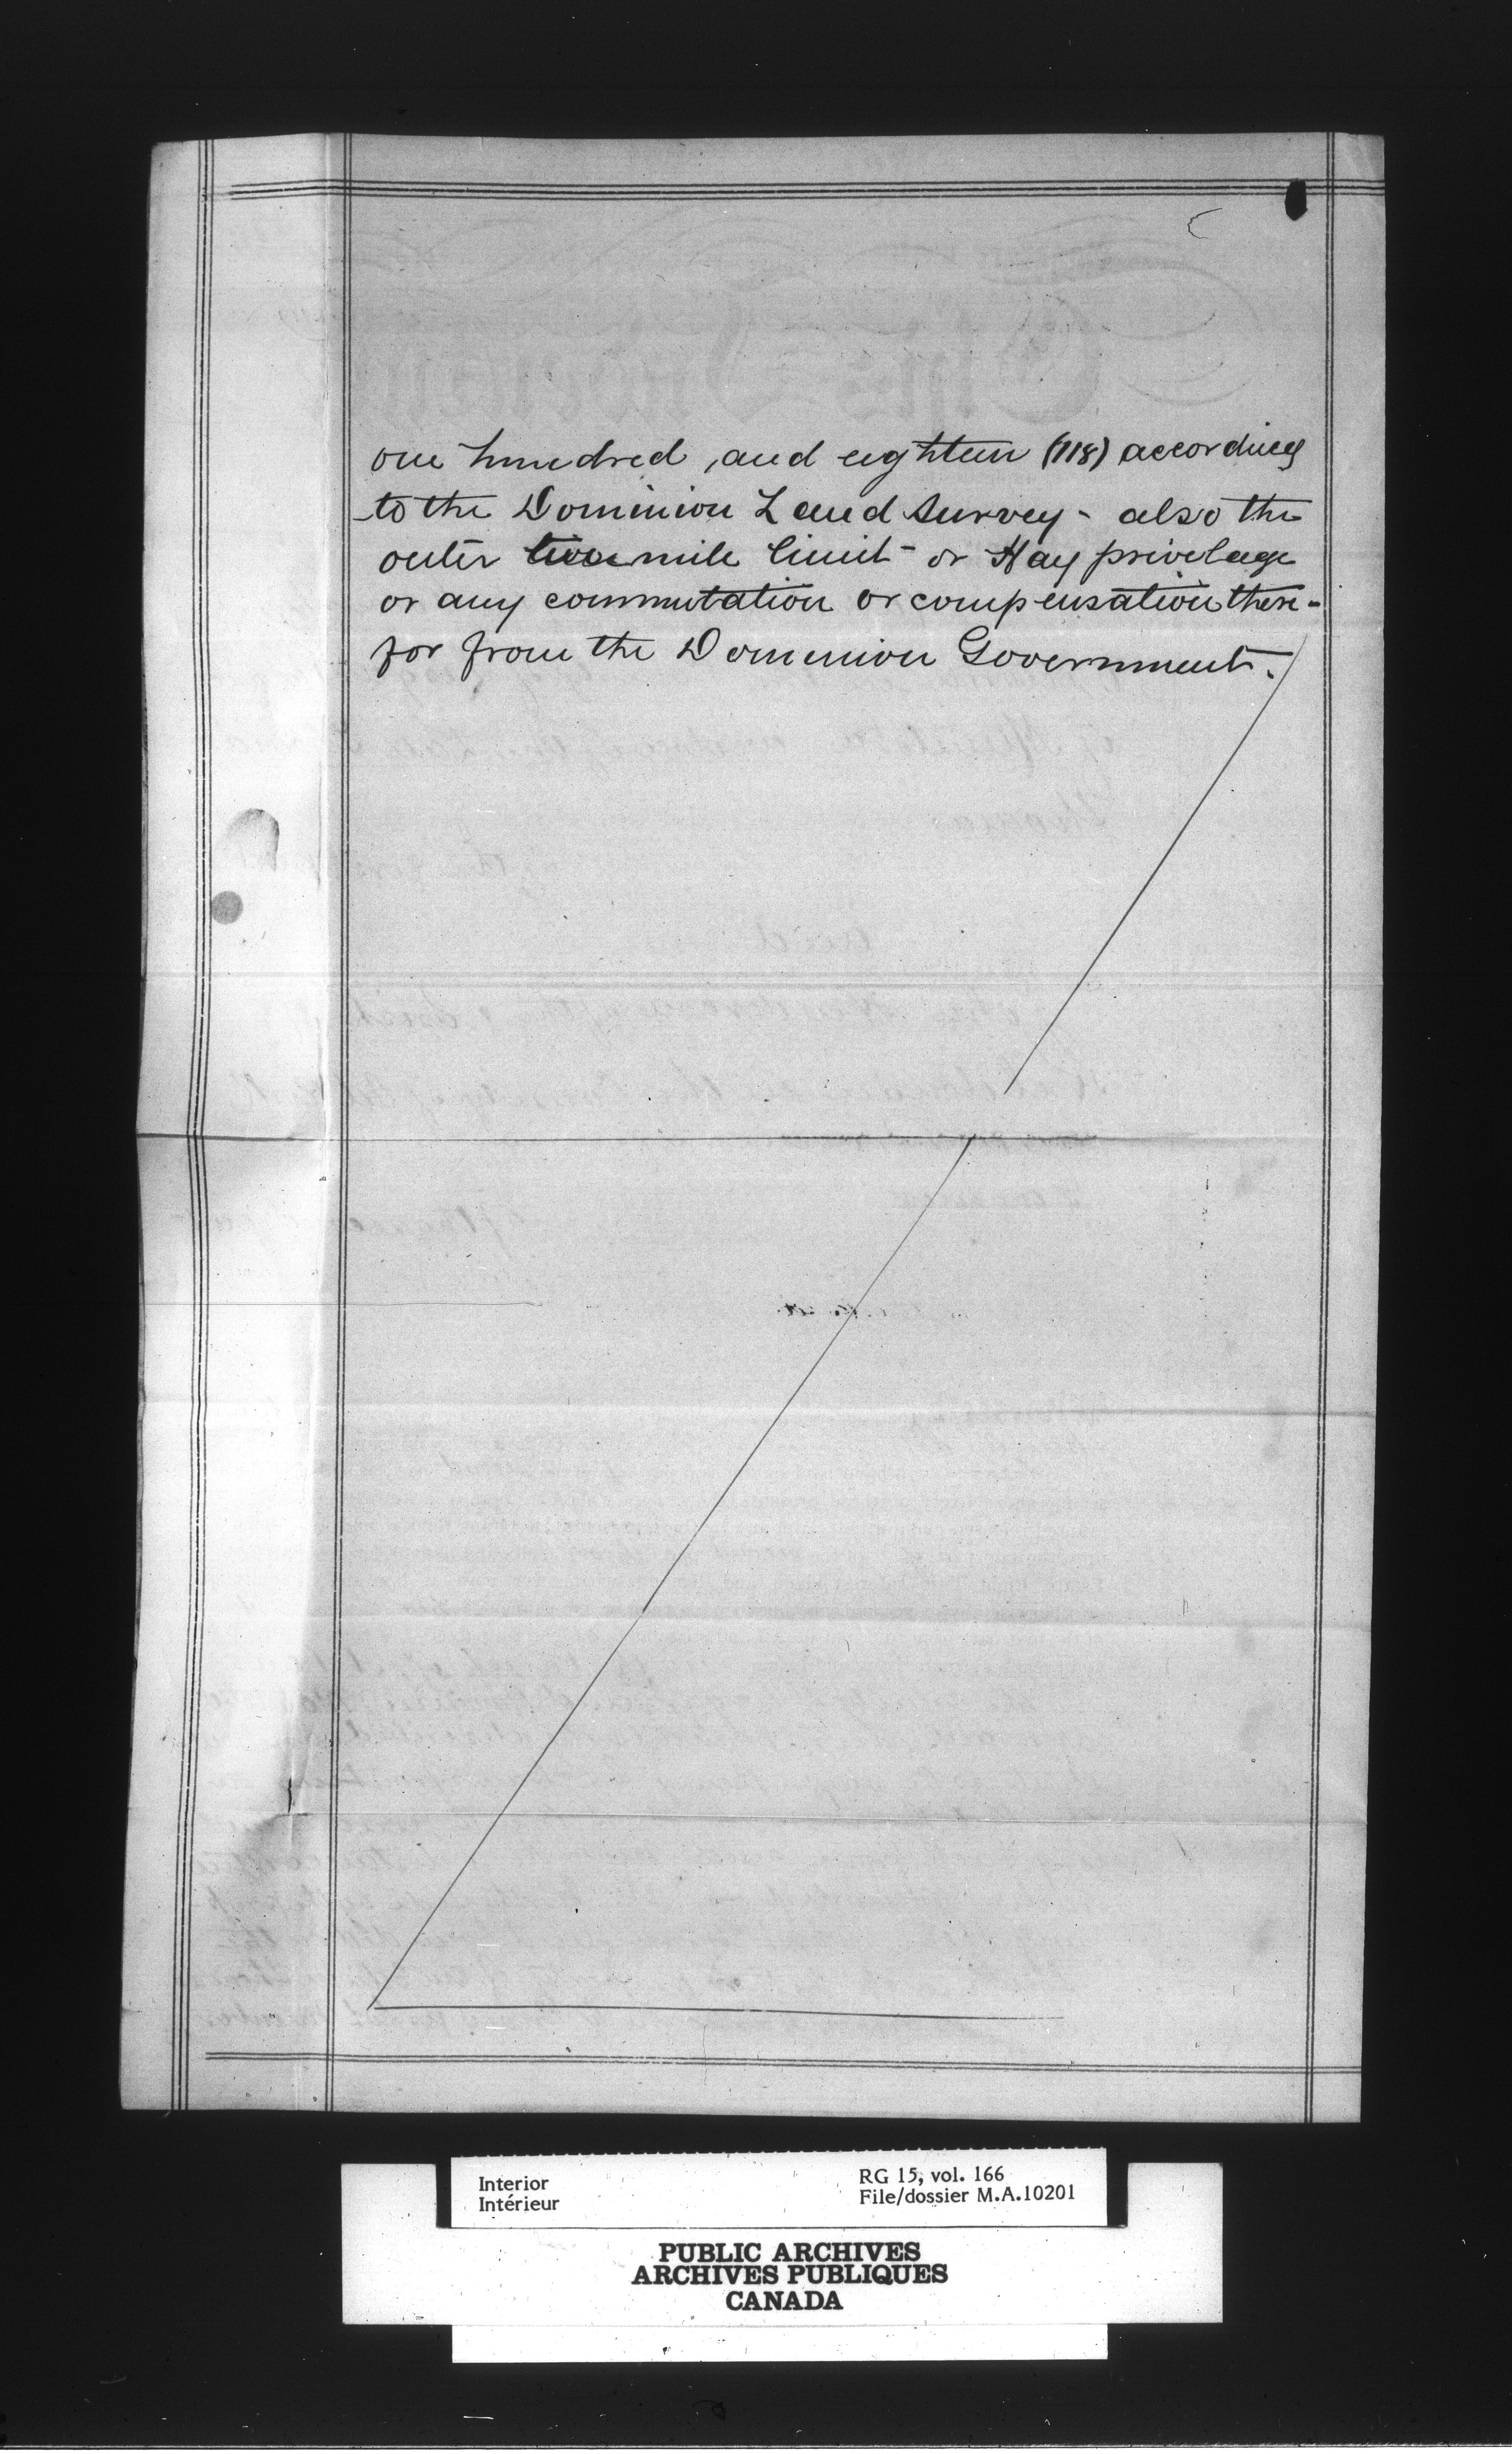 one hundred, and eighteen (118) according
to the Dominion Land Survey - also the
outer two mile limit - or Hay privelege
or any commutation or compensation there-
for from the Dominion Government.
Interior
Intérieur
RG 15, vol. 166
File/dossier M.A.10201
PUBLIC ARCHIVES
ARCHIVES PUBLIQUES
CANADA